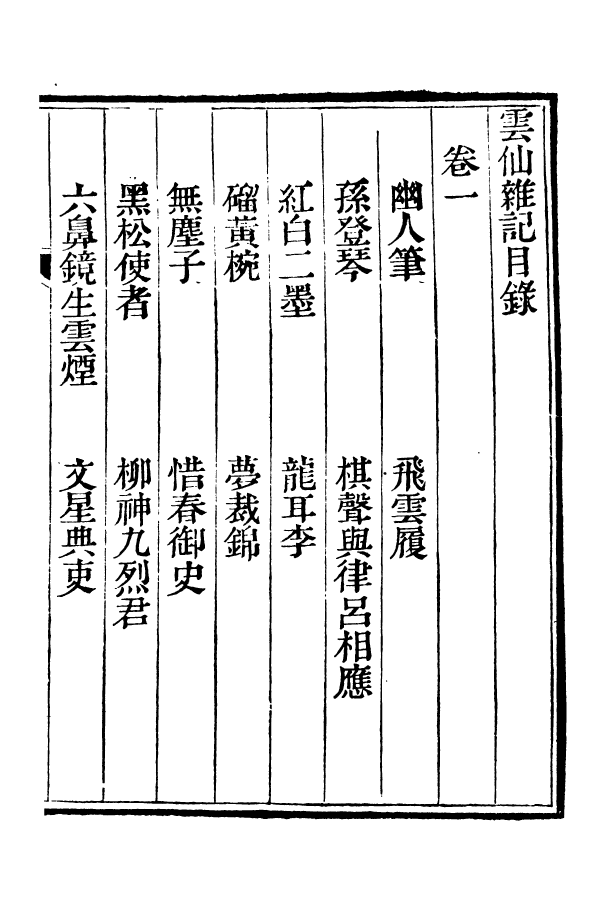 雲仙雜記目錄
卷一
幽人筆　飛雲履
孫登琴　棋聲與律呂相應
紅白二墨　龍耳李
磂黃椀　夢裁錦
無塵子　惜春御史
黑松使者　柳神九烈君
六鼻鏡生雲煙　文星典吏